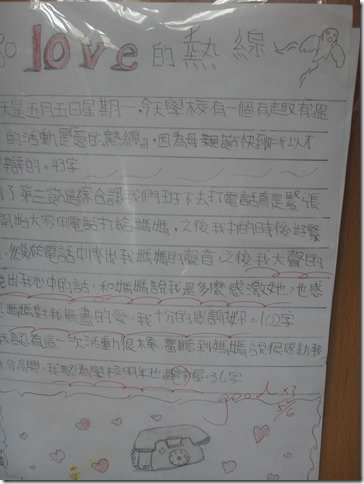 love的熱線
天是五月五日星期一,今天學校有一個有趣有趣
的活動是愛的熱線』,因為母親節快到了所以才
舉辦的。43字
了第三節是綜合課我們班下去打電話真是緊張
開始大家用電話打給媽媽,之後我打的時後好緊
,從電話中傳出我媽媽的聲音,之後我大聲的
說出我心中的話,和媽媽說我是多麼感激她,也感
媽媽對我無盡的愛,我十分的感謝妳。102字
我認為這一次活動很棒,當聽到媽媽說很感動我
十分高興,我認為學校 36字
good x3
5/6